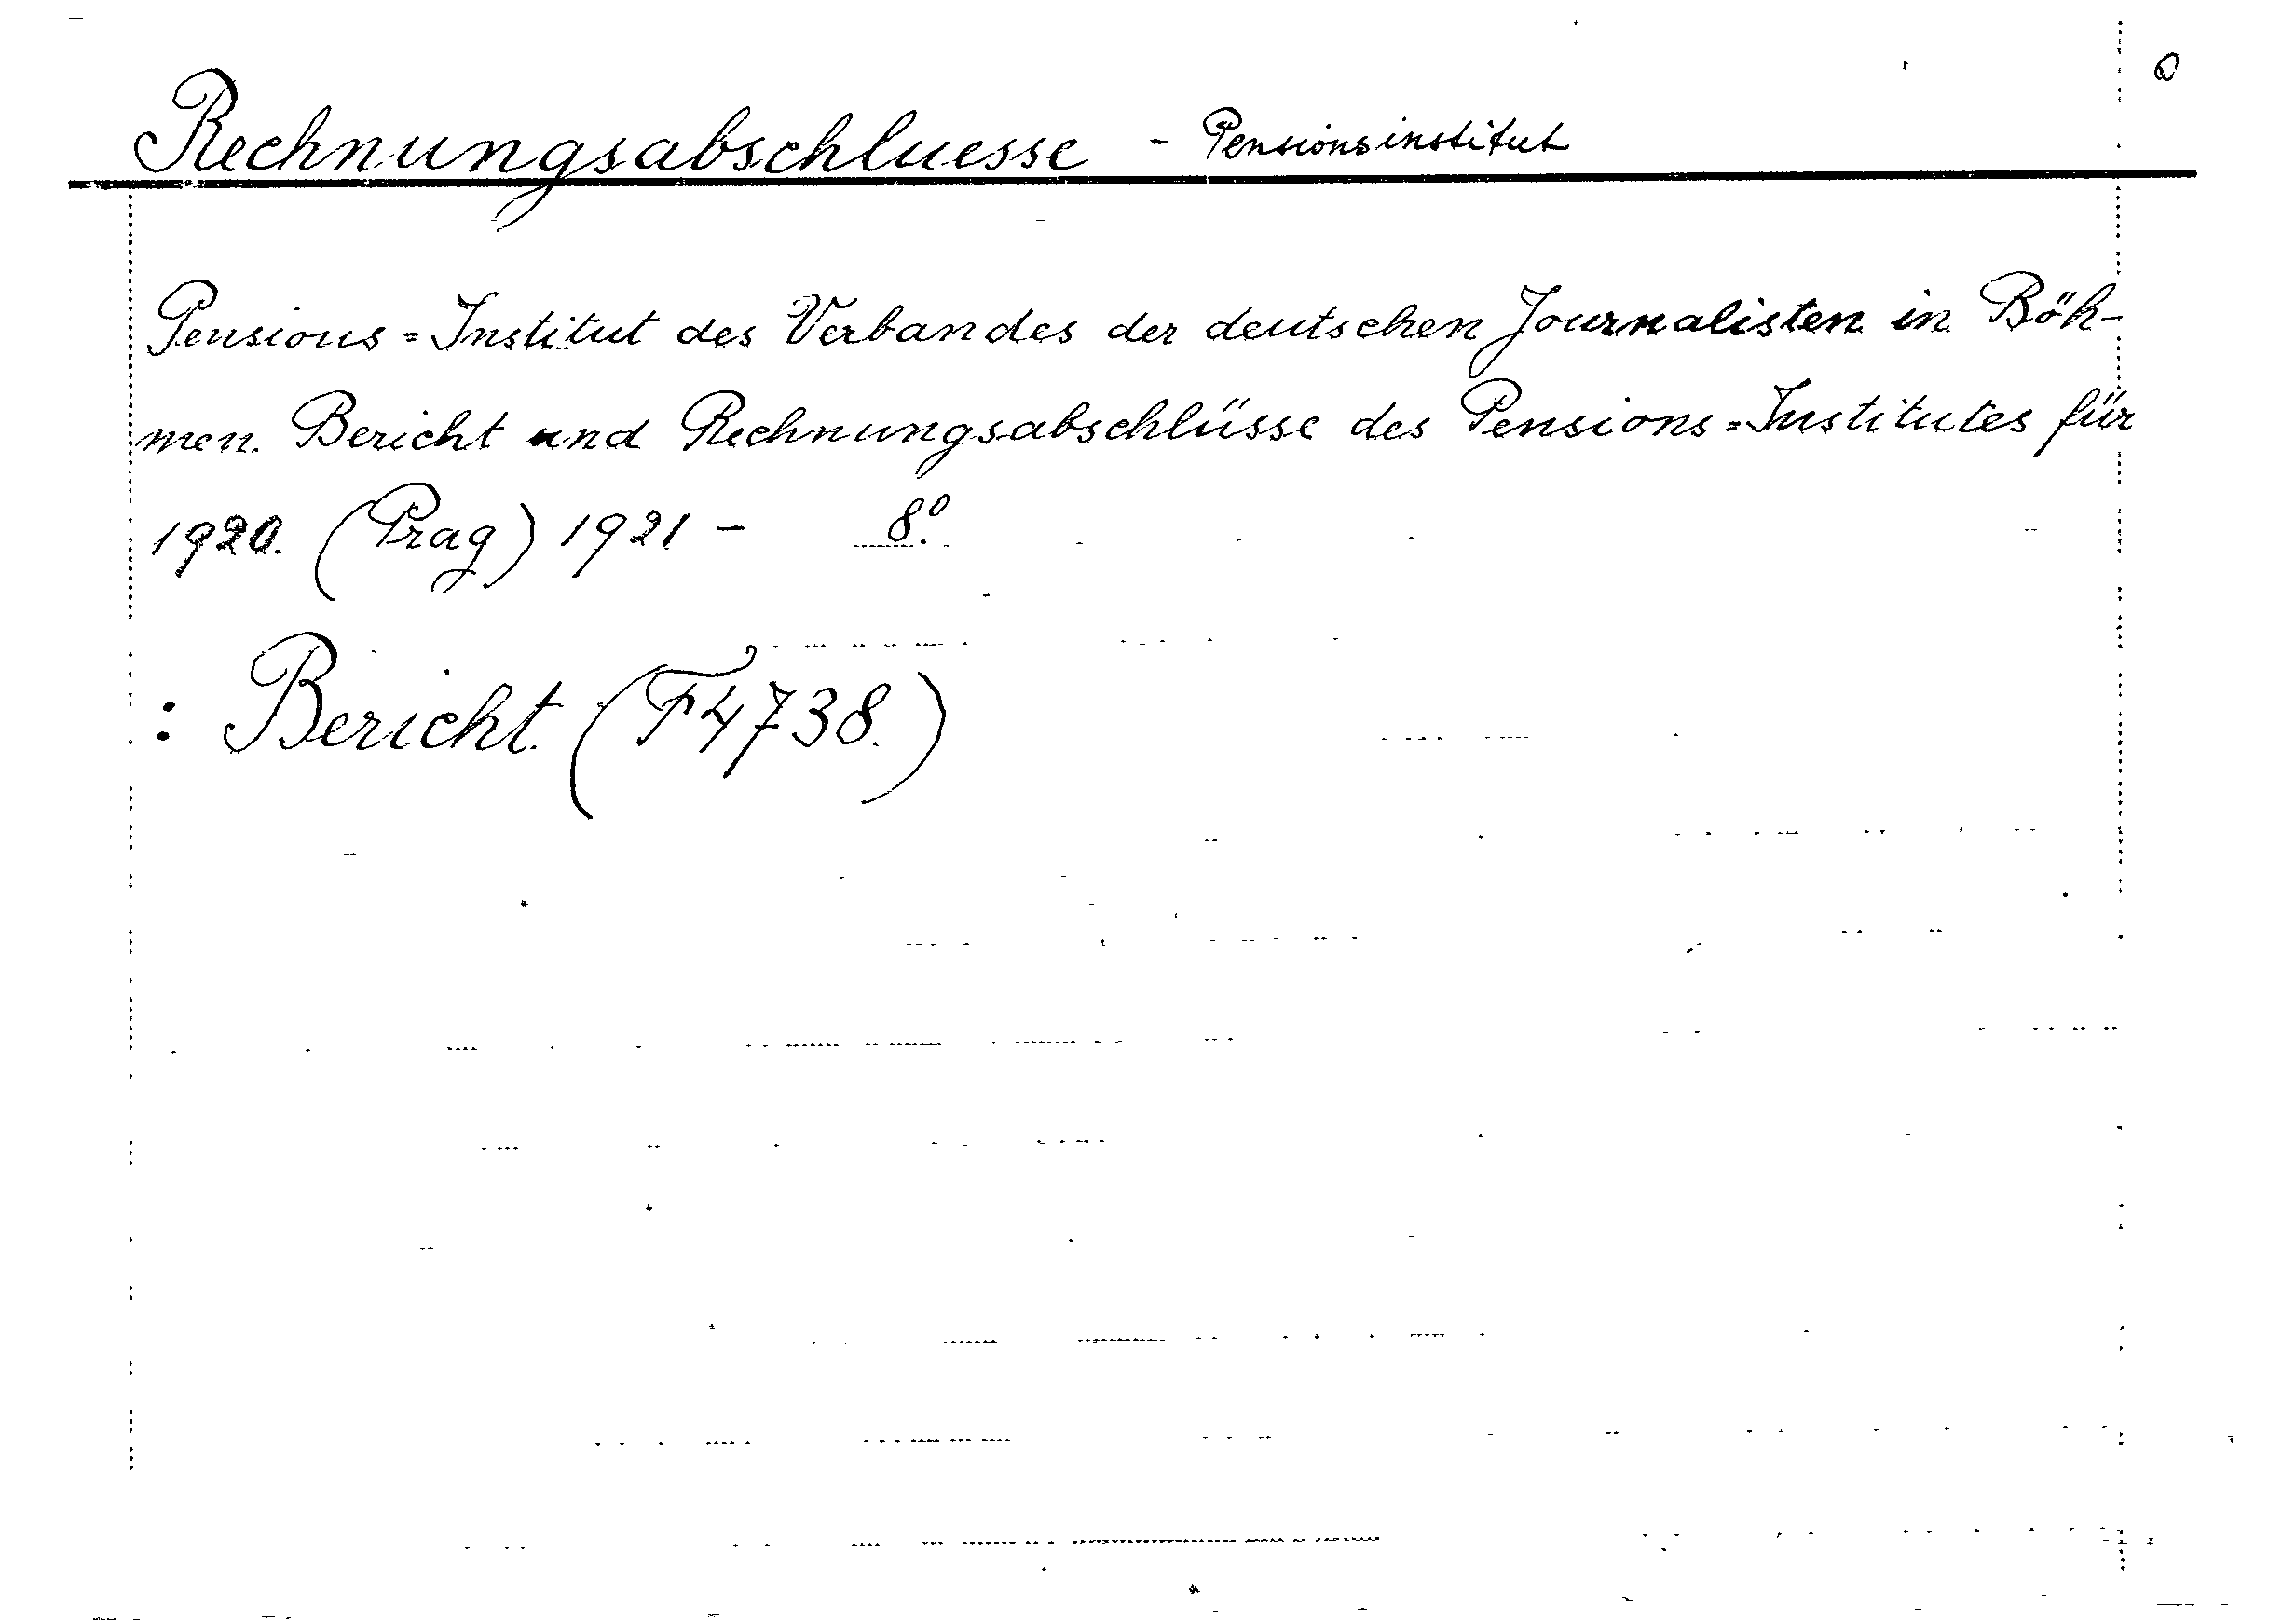 0
Rechnungsabschluesse - Pensionsinstitut
Pensions=Institut des Verbandes der deutschen Journalisten in Böh-
men. Bericht und Rechnungsabschlüsse des Pensions=Institutes für
1920. (Prag) 1921 - 8°.
: Bericht. (F4738.)